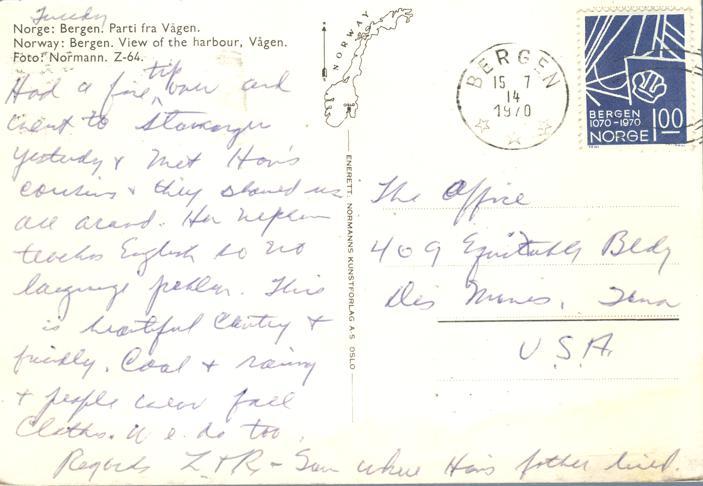 Tuesday
Norge: Bergen. Parti fra Vågen.
Norway: Bergen. View of the harbour, Vågen.
Foto: Normann. Z-64.
Had a fine trip over and
went to Stavanger
yesterday & met
cousins & they showed us
all around. Her nephew
teaches English so no
language problem. This
is beautiful Country &
friendly. Cool & rainy
& people wear fall
Cloths. We do too.
Regards L & R - Saw where father lived.
NORWAY
OSLO
ENERETT: NORMANNS KUNSTFORLAG A·S OSLO
BERGEN
15 7
14
1970
BERGEN
1070-1970
NORGE 100
The Office
409 Equitable Bldg
Des Moines, Iowa
U.S.A.